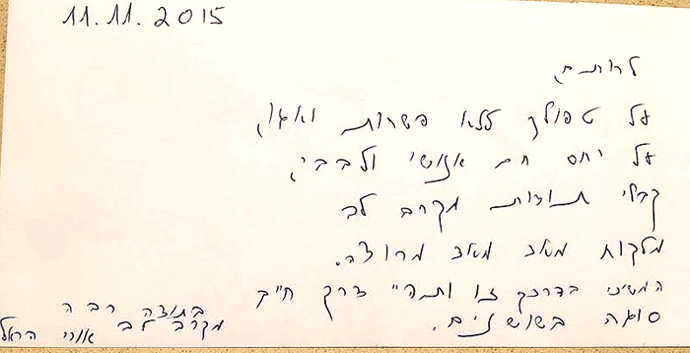 11.11.2015
לרותם,
על טפולך ללא פשרות ואגו,
על יחס חם אנושי ולבבי,
קבלי תודות מקרב לב
מלקוח מאד מאד מרוצה.
המשיכי בדרכך זו ותהי דרך ח"ק
סוגה בשושנים.
בתודה רבה
מקרב לב אורי הראל